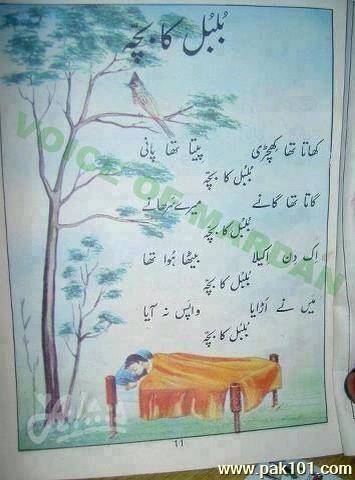 بُلبُل کا بچّہ
کھاتا تھا کھچڑی پیتا تھا پانی
بُلبُل کا بچّہ
گاتا تھا گانے میرے سَرھانے
بُلبُل کا بچّہ
اِک دن اکیلا بیٹھا ہُوا تھا
بُلبُل کا بچّہ
میں نے اُڑایا واپس نہ آیا
بُلبُل کا بچّہ
VOICE OF MARDAN
11
www.pak101.com